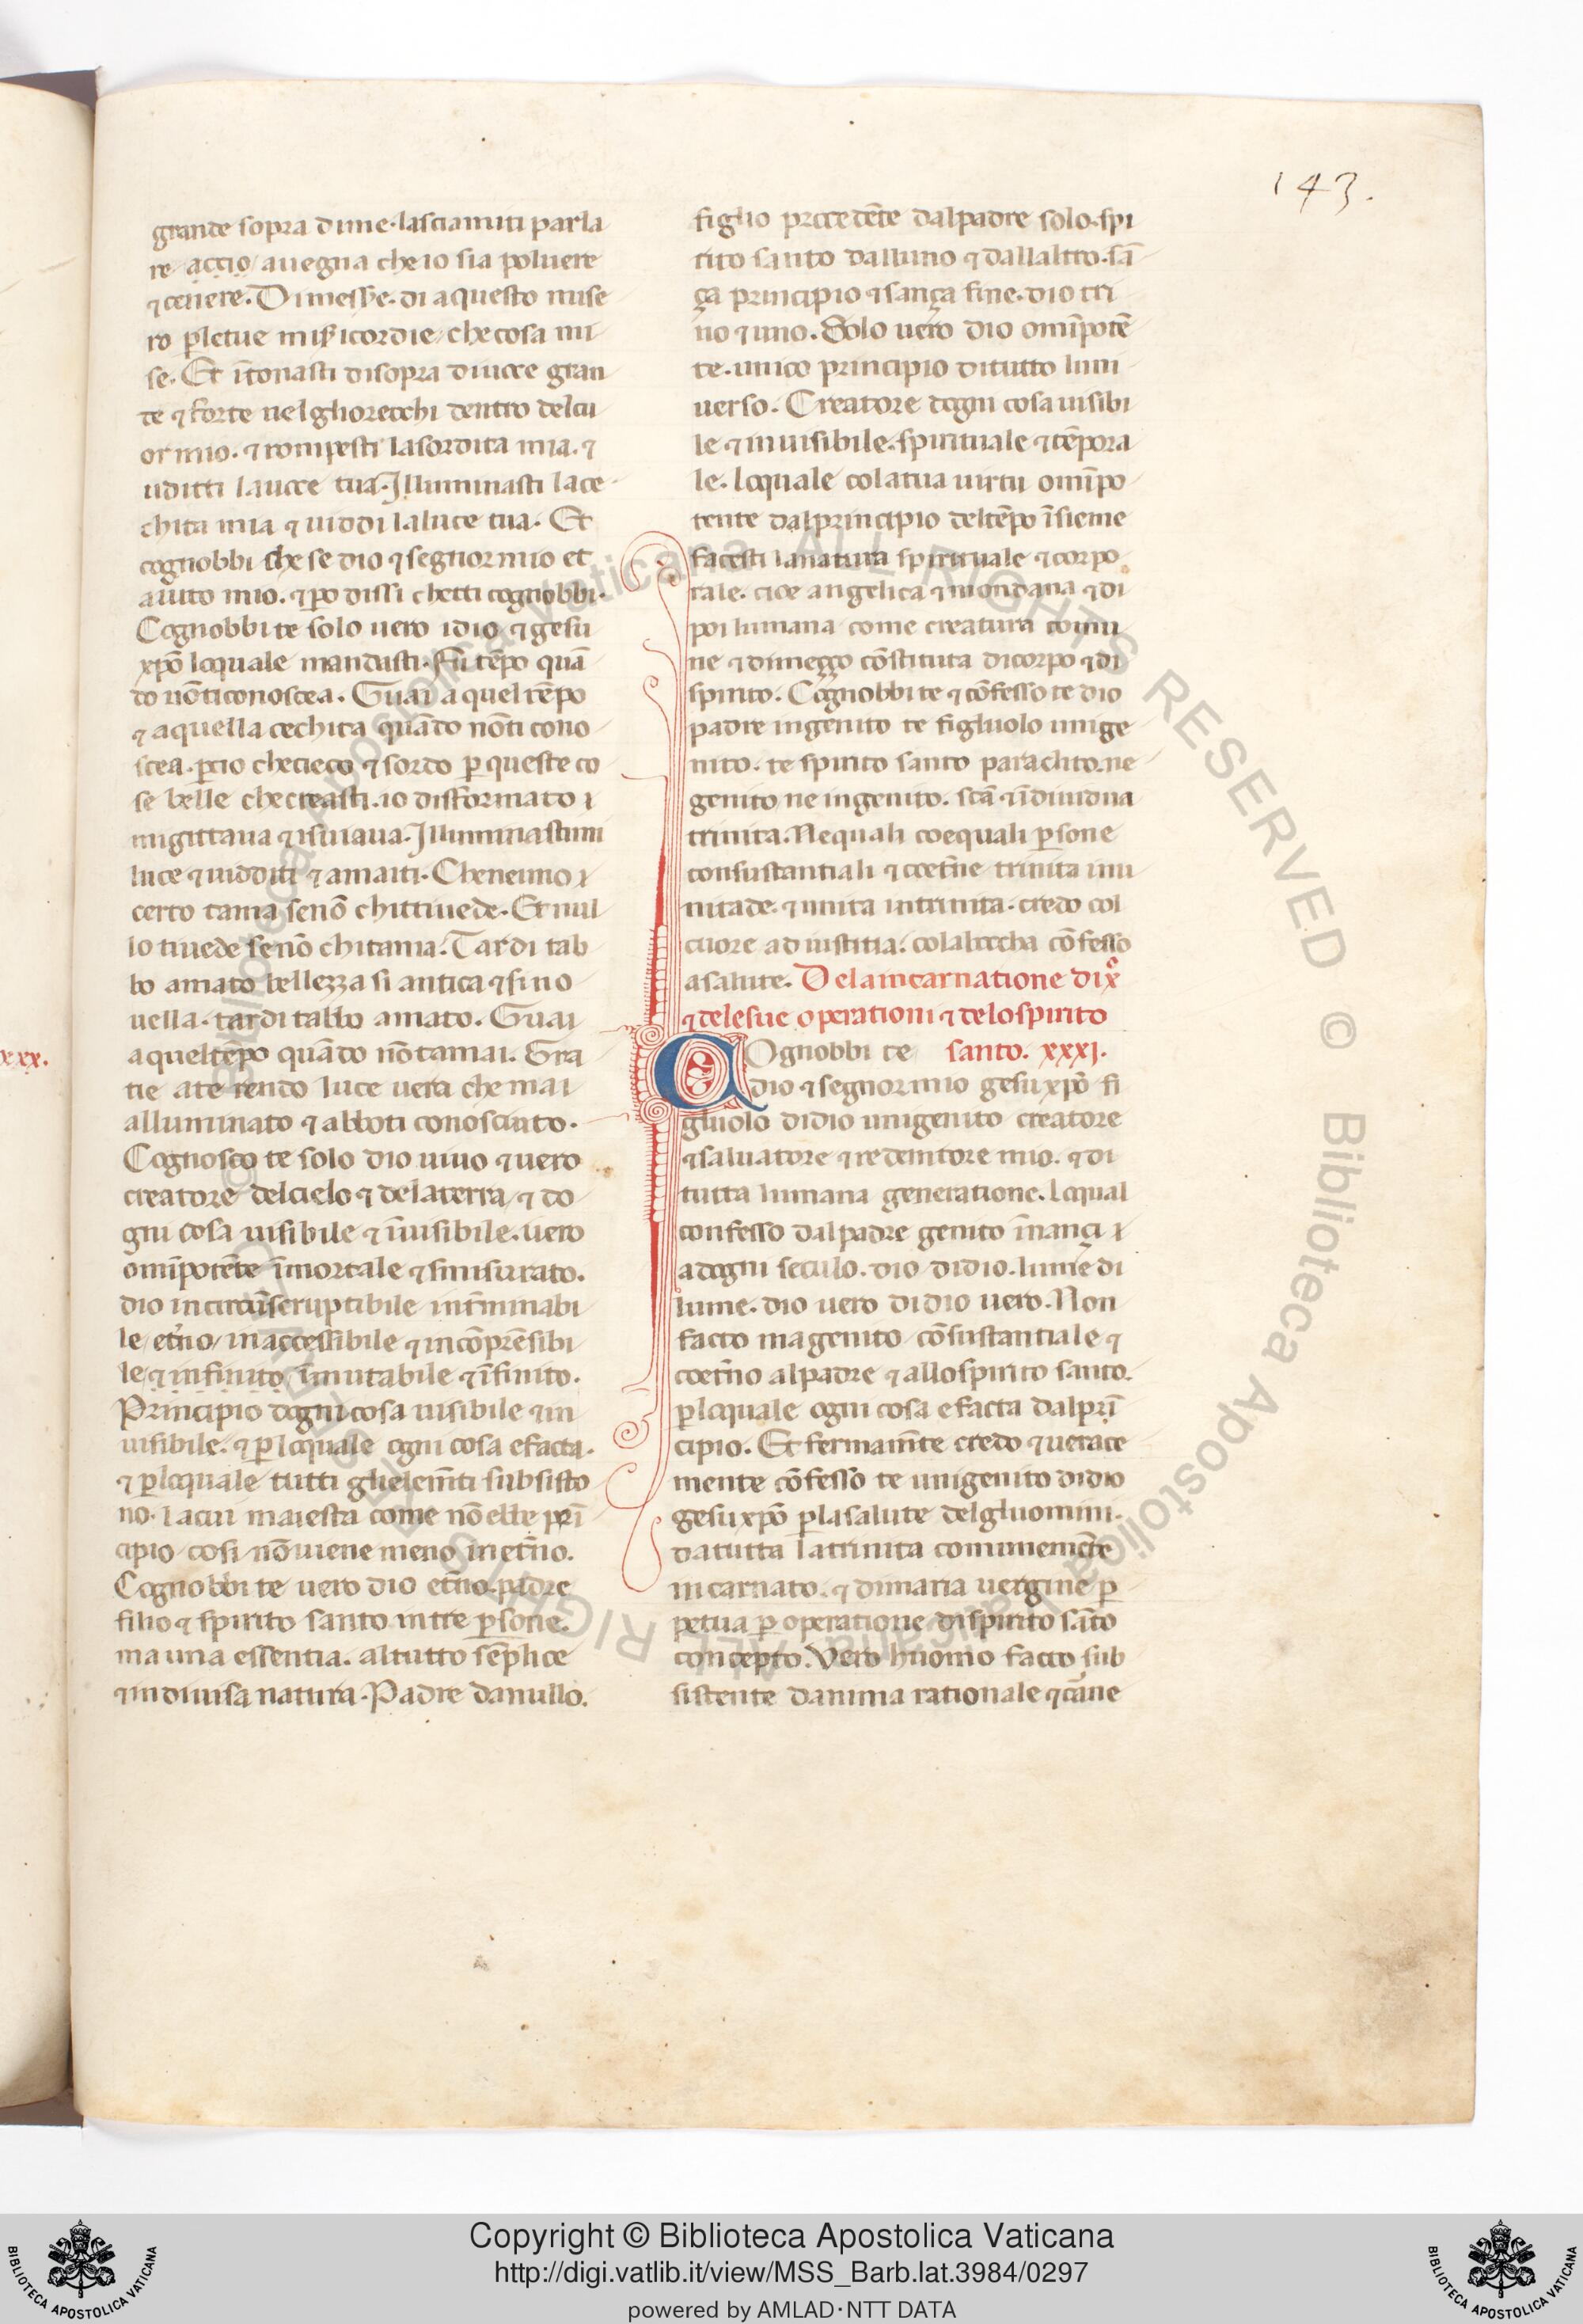 143.
grande sopra dime·lasciamiti parla
re accio/auegna che io sia poluere
⁊ cenere. Dimesse. di aquesto mise
ro ꝑletue misericordie/checosa mi
se. Et ītonasti disopra diuoce gran
de ⁊ forte nelghiorecchi dentro delcu
or mio. ⁊ rompesti lasordita mia. ⁊
uditti lauoce tua. Illuminasti lace
chita mia ⁊ uiddi laluce tua. Et
cognobbi che se dio ⁊ segnor mio et
aiuto mio. ⁊ ꝑo dissi chetti cognobbi.
Cognobbi te solo uero idio ⁊ gesu
xp̄o loquale mandasti. Fu tēpo quā
do nōticonoscea. Guai a quel tēpo
⁊ aquella cechita quādo nōti cono
scea. ꝑcio checieco ⁊ sordo ꝑ queste co
se belle checreasti. io disformato ı
migittaua ⁊ isuiaua. Illuminastimi
luce ⁊ uidditi ⁊ amaiti. Cheneuno ı
certo tama senō chittiuede. Et nul
lo tiuede senō chitama. Tardi tab
bo amato bellezza si antica ⁊ si no
uella. tardi tabbo amato. Guai
aqueltēpo quādo nō tamai. Gra
xxx.
tie ate rendo luce uera che mai
alluminato ⁊ abboti conosciuto.
Cognosco te solo dio uiuo ⁊ uero
creatore delcielo ⁊ delaterra/⁊ do
gni cosa uisibile ⁊ īuisibile. uero
omīpotēte īmortale ⁊ smisurato.
dio incircūscriptibile int̄minabi
le/et̄no/inaccessibile ⁊ incōprēsibi
le/⁊ infinito/īmutabile ⁊ īfinito.
Principio dogni cosa uisibile ⁊ in
uisibile. ⁊ ꝑ loquale ogni cosa e facta.
⁊ ꝑloquale tutti ghelem̄ti subsisto
no. lacui maiesta come nō ebbe prī
cipio/cosi nō uiene meno in et̄no.
Cognobbi te uero dio et̄no. padre
filio ⁊ spirito santo in tre ꝑsone.
ma una essentia. altutto sēplice
⁊ indiuisa natura. Padre danullo.
figlio procedēte dalpadre solo. spi
rito santo dalluno ⁊ dallaltro. sā
ça principio ⁊ sança fine. dio tri
no ⁊ uno. Solo uero dio omīpotē
te. unico principio ditutto luni
uerso. Creatore dogni cosa uisibi
le ⁊ inuisibile. spirituale ⁊ tēpora
le. loquale colatua uirtu omīpo
tente dalprincipio deltēpo īsieme
facesti lanatura spirituale ⁊ corpo
rale. cioe angelica ⁊ mondana ⁊ di
poi humana come creatura comu
ne ⁊ dimeçço cōstituta dicorpo ⁊ di
spirito. Cognobbi te ⁊ cōfesso te dio
padre ingenito te figluolo unige
nito. te spirito santo paraclito. ne
genito ne ingenito. scā ⁊ īdiuidua
trinita. Nequali coequali ꝑsone
consustantiali ⁊ coet̄ne trinita inu
nitade. ⁊ unita intrinita. credo col
cuore ad iustitia. colaboccha cōfesso
asalute. Delaincarnatione dixo
⁊ delesue operationi ⁊ delospirito
COgnobbi te santo. xxxj.
dio ⁊ segnor mio gesu xp̄o fi
gluolo didio unigenito creatore
⁊ saluatore ⁊ redemtore mio. ⁊ di
tutta humana generatione. loqual
confesso dalpadre genito īnançi ı
adogni seculo. dio didio. lume di
lume. dio uero didio uero. Non
facto magenito/cōsustantiale ⁊
coet̄no alpadre ⁊ allospirito santo.
ꝑloquale ogni cosa e facta dalprī
cipio. Et fermam̄te credo ⁊ uerace
mente cōfesso te unigenito didio
gesu xp̄o ꝑlasalute delgluomini.
datutta latrinita comunemēte
incarnato. ⁊ dimaria uergine ꝑ
petua ꝑ operatione dispirito sāto
concepto. Vero huomo facto sub
sistente danima rationale ⁊ carne
Copyright © Biblioteca Apostolica Vaticana
http://digi.vatlib.it/view/MSS_Barb.lat.3984/0297
powered by AMLAD·NTT DATA